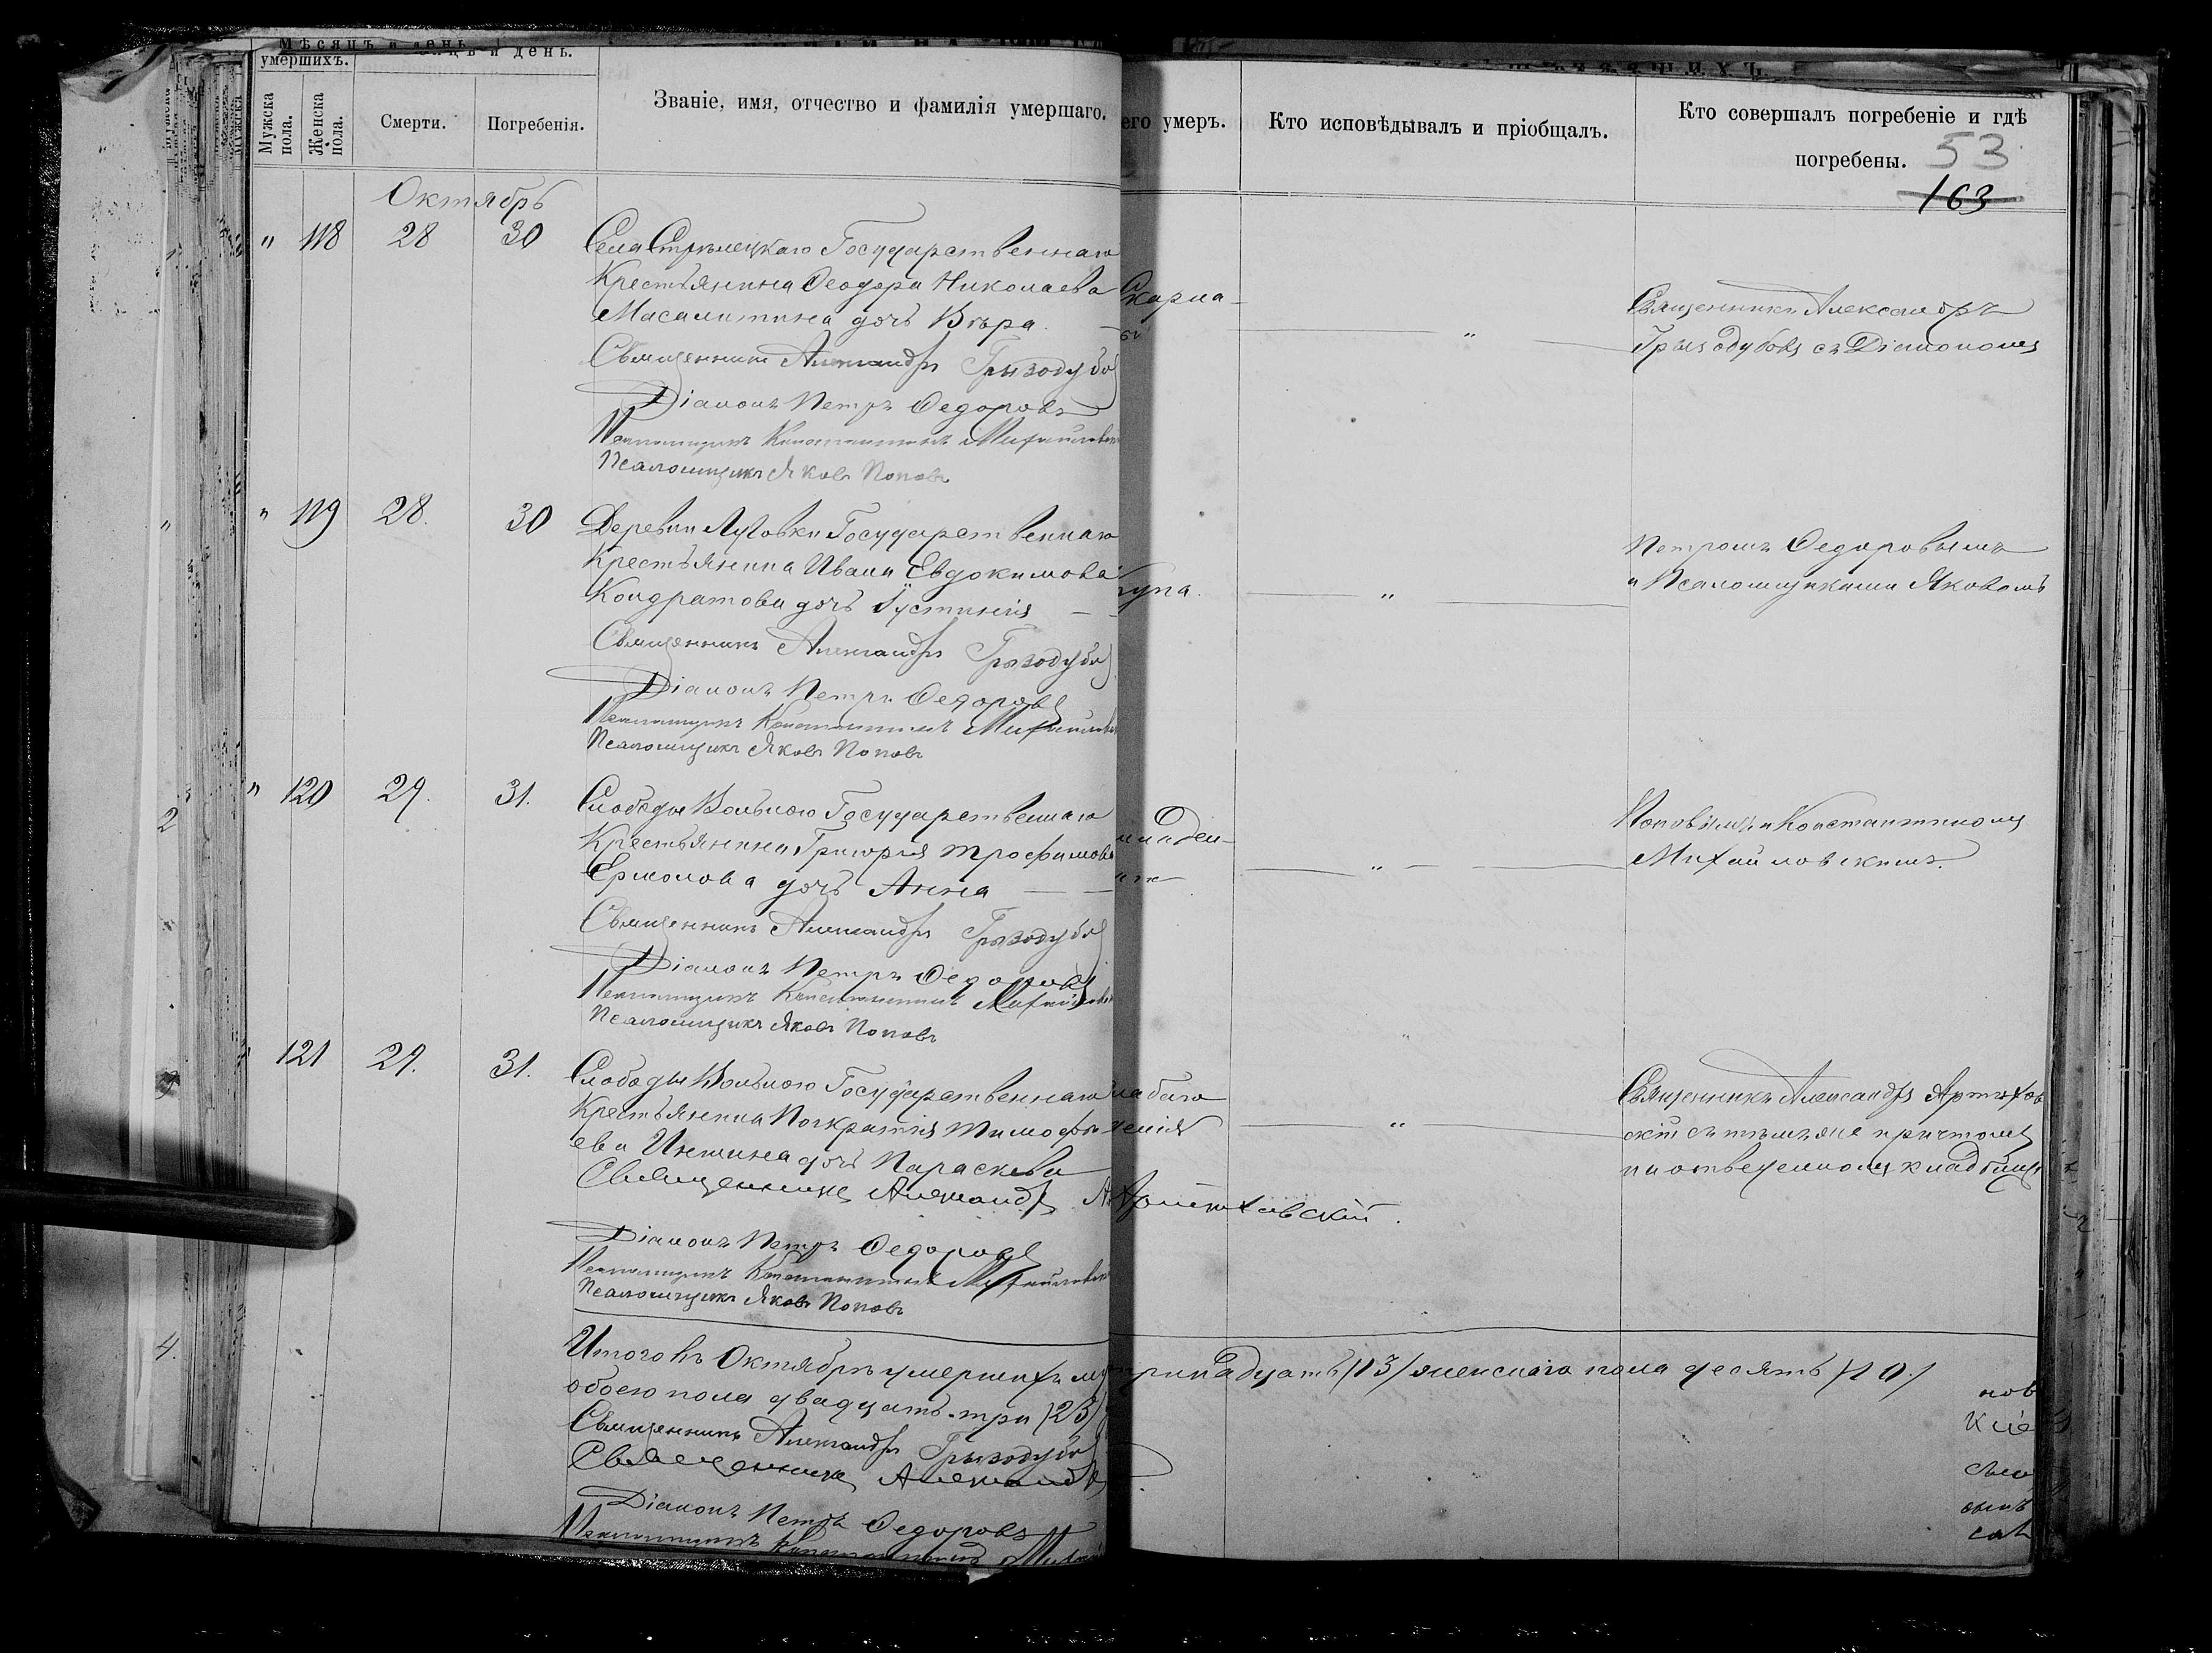 умершихъ.
Мѣсяцъ и день.
Мужска пола.
Женска пола.
Смерти.
Погребенія.
Званіе, имя, отчество и фамилія умершаго.
его умеръ.
Кто исповѣдывалъ и пріобщалъ.
Кто совершалъ погребеніе и гдѣ
погребены.
53
163
Октябрь
" 118 28 30 Села Стрѣлецкаго Государственнаго
Крестьянина Ѳеодора Николаева
Масалитина дочь Вѣра
Священникъ Александръ Грызодубо
Діаконъ Петръ Ѳедоровъ
Псаломщикъ Константинъ Михайловск
Псаломщикъ Яковъ Поповъ
Скарла-
"
Священникъ Александръ
Грызодубовъ съ Діакономъ
" 119 28. 30 Деревни Луговки Государственнаго
Крестьянина Ивана Евдокимова
Кондратова дочь Іустинія
Священникъ Александръ Грызодубо
Діаконъ Петръ Ѳедоровъ
Псаломщикъ Константинъ Михайловск
Псаломщикъ Яковъ Поповъ
"
Петромъ Ѳедоровымъ
и Псаломщиками Яковомъ
" 120 29. 31. Слободы Вольного Государственнаго
Крестьянина Григорія Трофимова
Ермолова дочь Анна
Священникъ Александръ Грызодубо
Діаконъ Петръ Ѳедоровъ
Псаломщикъ Константинъ Михайловск
Псаломщикъ Яковъ Поповъ
младен-
"
Поповымъ и Константиномъ
Михайловскимъ.
121 29. 31. Слободы Вольного Государственнаго
Крестьянина Панкратія Тимофе
ева Иншина дочь Параскева
Священникъ Александръ Артюховскій.
Діаконъ Петръ Ѳедоровъ
Псаломщикъ Константинъ Михайловск
Псаломщикъ Яковъ Поповъ
"
Священникъ Александръ Артюхов
скій съ тѣмъ же причтомъ
на отведенномъ кладбищѣ
Итого въ Октябрѣ умершихъ му тринадцать (13) женскаго пола десять (10)
обоего пола двадцать три (23)
Священникъ Александръ Грызодубо
Священникъ Александръ
Діаконъ Петръ Ѳедоровъ
Псаломщикъ Константинъ Михай